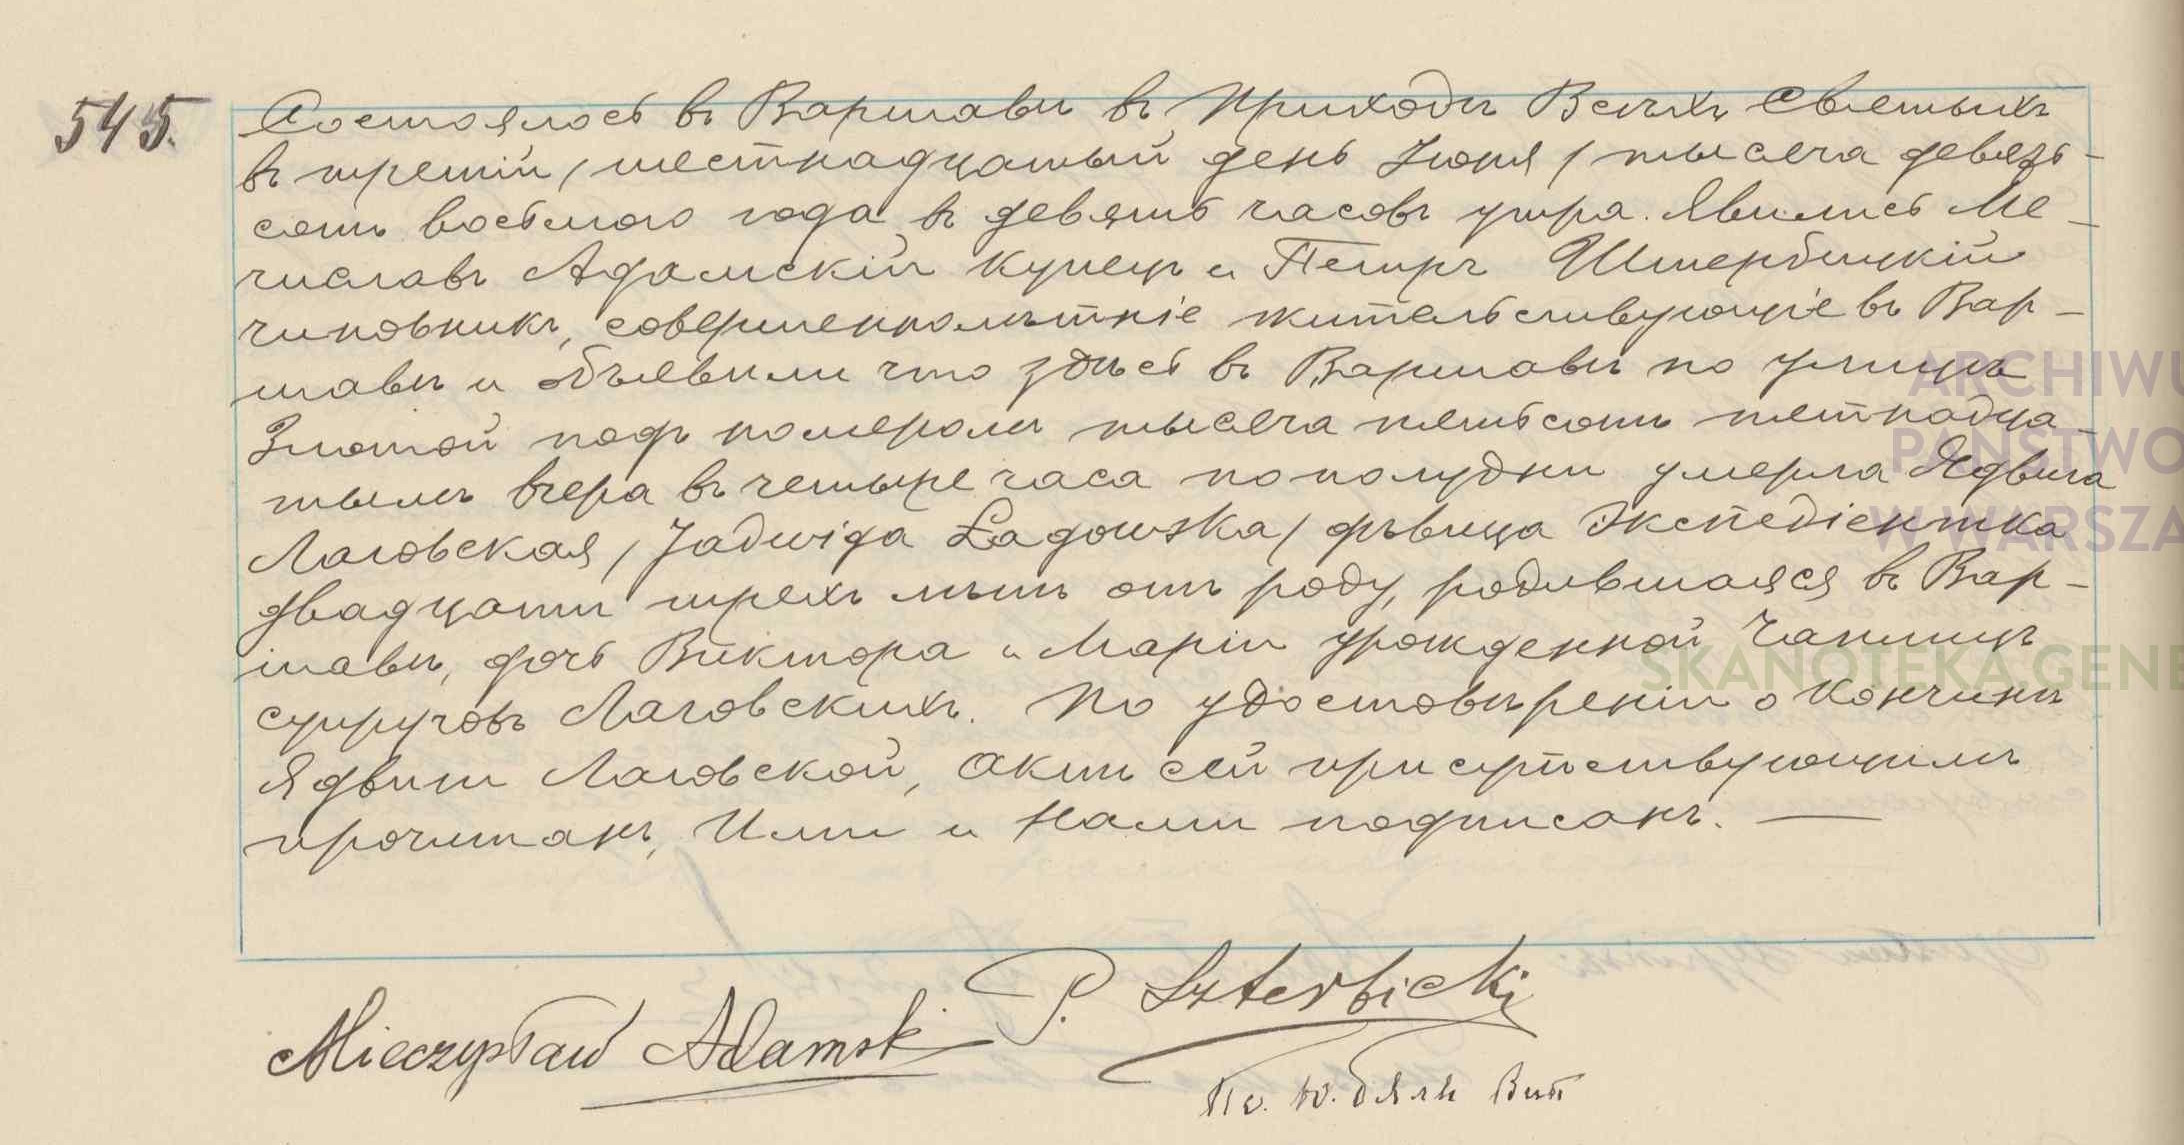 545.
Состоялось въ Варшавѣ въ Приходѣ Всѣхъ Святыхъ
въ третій / шестнадцатый день Іюня / тысяча девять-
сотъ восьмого года въ девять часовъ утра. Явились Ме-
числавъ Адамскій купецъ и Петръ Штербицкій
чиновникъ, совершеннолѣтніе жительствующіе въ Вар-
шавѣ и объявили что здѣсь въ Варшавѣ по улицѣ
Злотой подъ номеромъ тысяча пятьсотъ пятнадца-
тымъ вчера въ четыре часа пополудни умерла Ядвига
Лаговская / Jadwiga Łagowska / дѣвица экспедіентка
двадцати трехъ лѣтъ отъ роду, родившаяся въ Вар-
шавѣ, дочь Виктора и Маріи урожденной Чаплицъ
супруговъ Лаговскихъ. По удостовѣреніи о кончинѣ
Ядвиги Лаговской, Актъ сей присутствующимъ
прочитанъ, Ими и Нами подписанъ. —
Mieczysław Adamski P. Szterbicki
АRCHIWU
PAŃSTWO
W WARSZA
SKANOTEKA.GENE